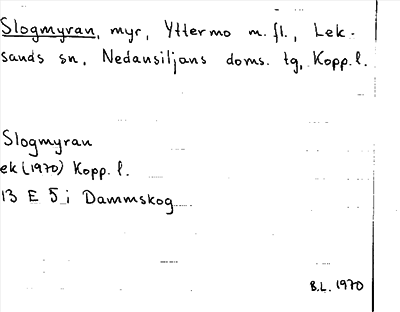 Slogmyran, myr, Yttermo m.fl., Lek-
sands sn, Nedansiljans doms. tg, Kopp. l.
Slogmyran
ek (1970) Kopp. l.
13 E 5 i Dammskog
B.L. 1970